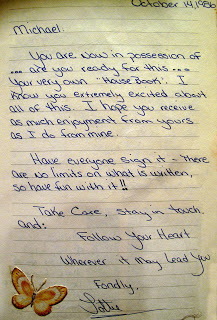 October 14, 1986
Michael:
You are now in possession of
... are you ready for this ...
Your very own "House Book". I
know you extremely excited about
all of this. I hope you receive
as much enjoyment from yours
as I do from mine.
Have everyone sign it - There
are no limits on what is written,
so have fun with it!!
Take Care, stay in touch,
and:
Follow Your Heart
Wherever it May Lead You
Fondly,